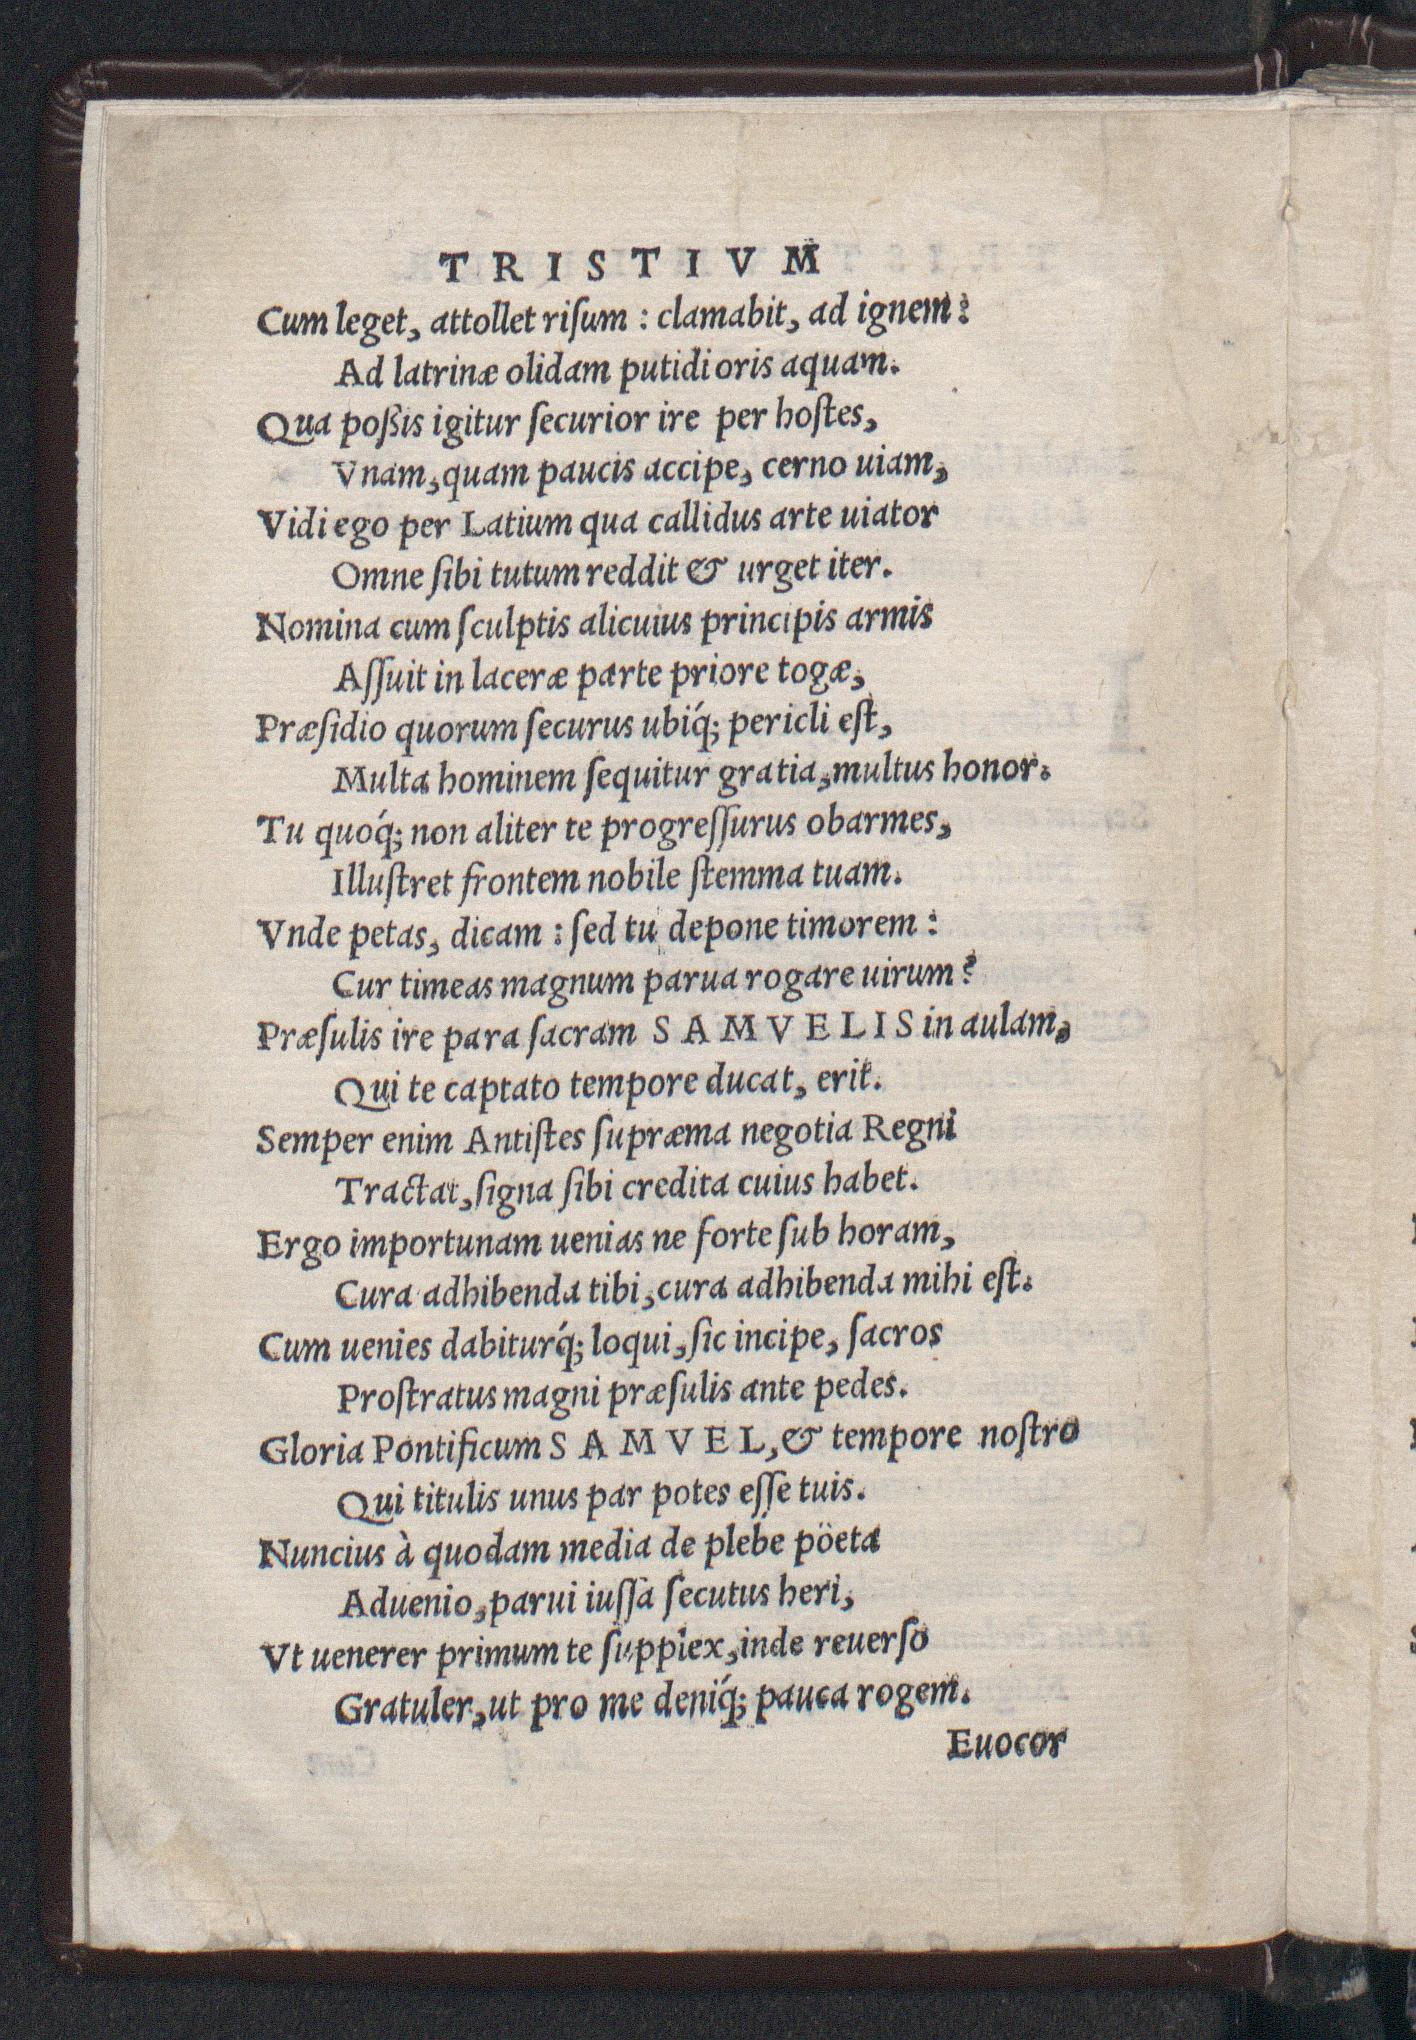 TRISTIVM
Cum leget, attollet riſum : clamabit, ad ignem:
Ad latrinæ olidam putidi oris aquam.
Qua poßis igitur ſecurior ire per hoſtes,
Vnam, quam paucis accipe, cerno uiam,
Vidi ego per Latium qua callidus arte uiator
Omne ſibi tutum reddit & urget iter.
Nomina cum ſculptis alicuius principis armis
Aſſuit in laceræ parte priore togæ,
Præſidio quorum ſecurus ubiq́; pericli eſt,
Multa hominem ſequitur gratia, multus honor.
Tu quoq́; non aliter te progreſſurus obarmes,
Illuſtret frontem nobile ſtemma tuam.
Vnde petas, dicam : ſed tu depone timorem :
Cur timeas magnum parua rogare uirum?
Præſulis ire para ſacram SAMVELIS in aulam,
Qui te captato tempore ducat, erit.
Semper enim Antiſtes ſupræma negotia Regni
Tractat, ſigna ſibi credita cuius habet.
Ergo importunam uenias ne forte ſub horam,
Cura adhibenda tibi, cura adhibenda mihi eſt.
Cum uenies dabiturq́; loqui, ſic incipe, ſacros
Proſtratus magni præſulis ante pedes.
Gloria Pontificum SAMVEL, & tempore noſtro
Qui titulis unus par potes eſſe tuis.
Nuncius à quodam media de plebe pöeta
Aduenio, parui iuſſa ſecutus heri,
Vt uenerer primum te ſupplex, inde reuerſo
Gratuler, ut pro me deniq́; pauca rogem.
Euocor